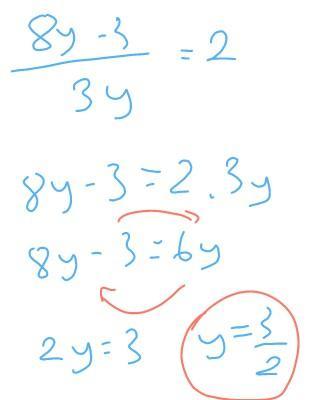 8y - 3
3y
= 2
8y - 3 = 2 . 3y
8y - 3 = 6y
2y = 3
y = 3/2